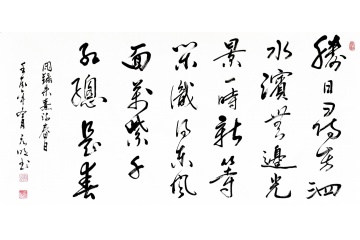 勝日尋芳泗
水濱無邊光
景一時新等
閒識得東風
面萬紫千
紅總是春
朱熹詩春日